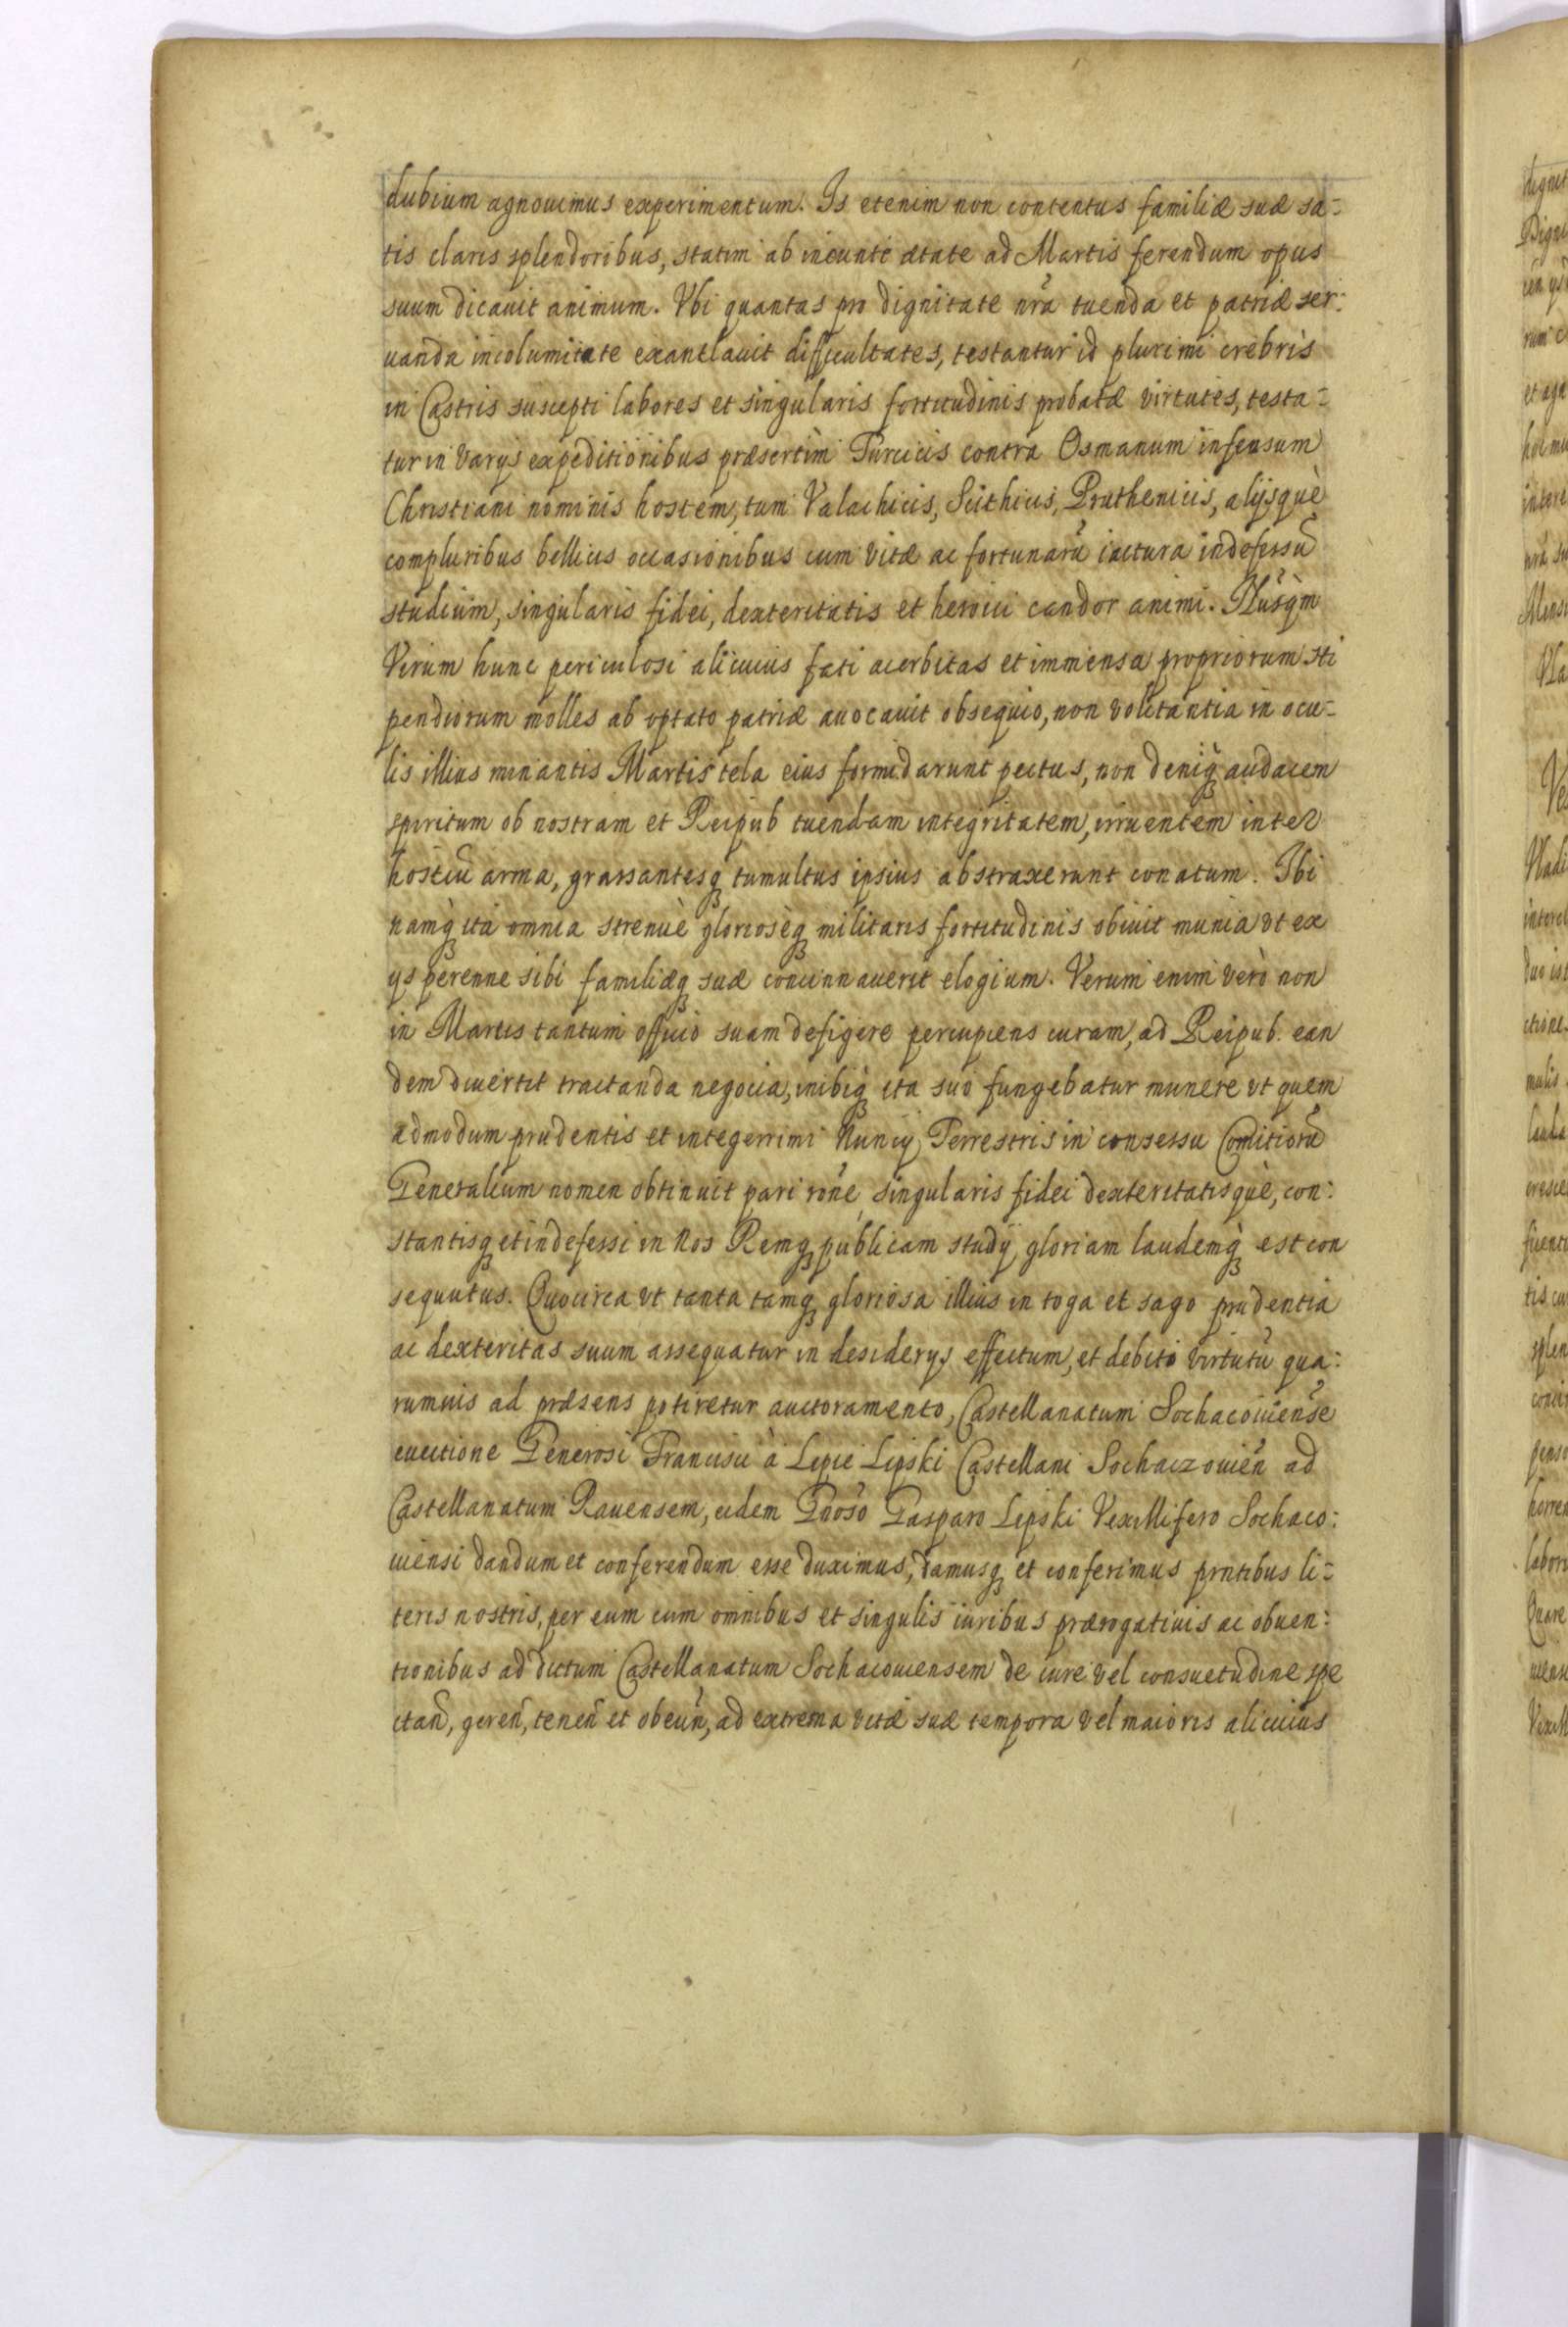 dubium agnouimus experimentum. Is etenim non contentus familiæ suæ sa-
tis claris splendoribus, statim ab ineunte ætate ad Martis ferendum opus
suum dicauit animum. Vbi quantas pro dignitate nrã tuenda et patriæ ser:
uanda incolumitate exantlauit difficultates, testantur id plurimi crebris
in Castris suscepti labores et singularis fortitudinis probatæ virtutes, testa-
tur in varys expeditionibus præsertim Turcicis contra Osmanum infensum
Christiani nominis hostem, tum Valachicis, Scithicis, Pruthenicis, alijsquè
compluribus bellicis occasionibus cum vitæ ac fortunarũ iactura indefessũ
studium, singularis fidei, dexteritatis et heroici candor animi. Nusq̃m
Virum hunc periculosi alicuius fati acerbitas et immensa propriorum sti
pendiorum molles ab optato patriæ auocauit obsequio, non volitantia in ocu-
lis illius minantis Martis tela eius formidarunt pectus, non deniq̃ audacem
spiritum ob nostram et Reipub tuendam integritatem, irruentem inter
hostiũ arma, grassantesq tumultus ipsius abstraxerunt conatum. Ibi
namq̃ ita omnia strenuè gloriosèq militaris fortitudinis obiuit munia vt ex
ys perenne sibi familiæq suæ concinnauerit elogium. Verum enim verò non
in Martis tantum officio suam defigere percupiens curam, ad Reipub. ean
dem diuertit tractanda negocia, inibiq̃ ita suo fungebatur munere vt quem
admodum prudentis et integerrimi Nuncij Terrestris in consessu Comitiorũ
Generalium nomen obtinuit pari rõne, singularis fidei dexteritatisquè, con:
stantisq et indefessi in Nos Remq publicam studij gloriam laudemq̃ est con
sequutus. Quocirca vt tanta tamq gloriosa illius in toga et sago prudentia
ac dexteritas suum assequatur in desiderys effectum, et debito virtutũ qua:
rumuis ad præsens potiretur auctoramento, Castellanatum Sochacouieñse
euectione Generosi Francisci à Lipie Lipski Castellani Sochaczouieñ ad
Castellanatum Rauensem, eidem Gñoso Gasparo Lipski Vexillifero Sochaco:
uiensi dandum et conferendum esse duximus, damusq et conferimus prntibus li-
teris nostris, per eum cum omnibus et singulis iuribus prærogatiuis ac obuen:
tionibus ad dictum Castellanatum Sochacouiensem de iure vel consuetudine spe
ctañ, gereñ, teneñ et obeuñ, ad extrema vitæ suæ tempora vel maioris alicuius